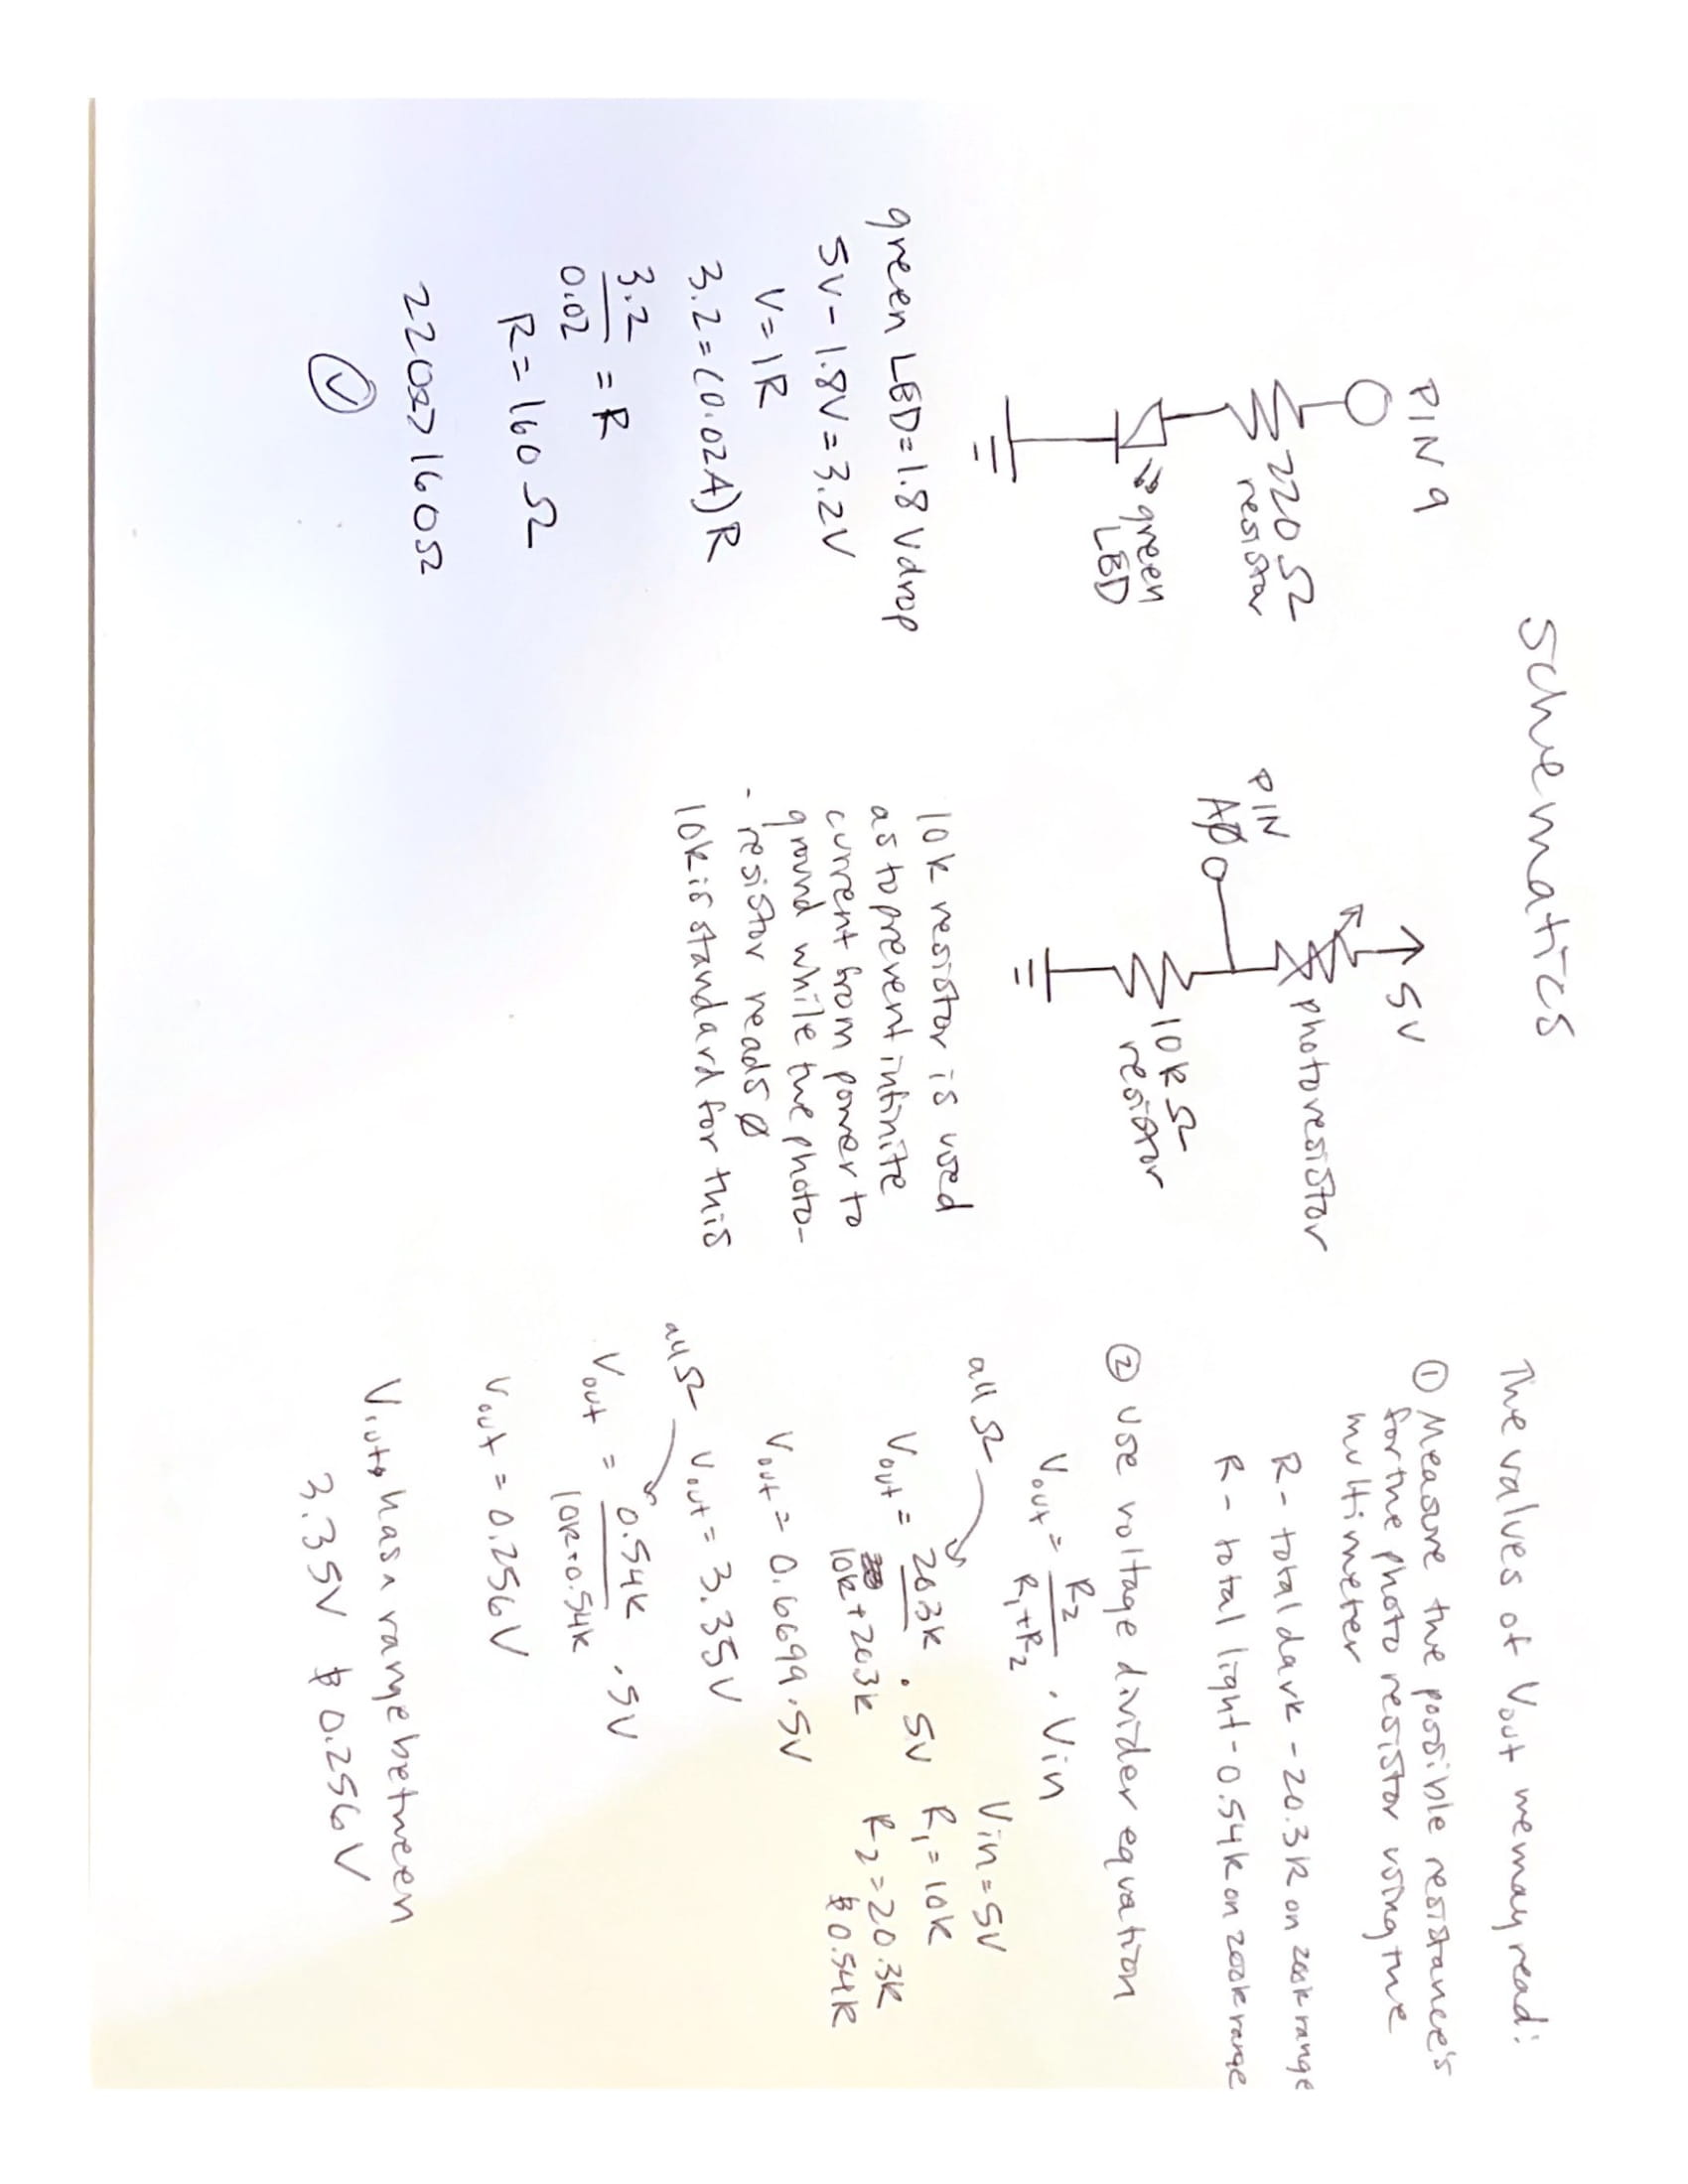 schematics
PIN 9
220 Ω
resistor
green
LED
green LED = 1.8 V drop
5V - 1.8V = 3.2V
V = IR
3.2 = (0.02A) R
3.2
0.02
= R
R = 160 Ω
220Ω > 160Ω
5V
photoresistor
PIN
AØ
10k Ω
resistor
10k resistor is used
as to prevent infinite
current from power to
ground while the photo-
- resistor reads Ø
10k is standard for this
The values of Vout we may read:
① Measure the possible resistance's
for the photo resistor using the
multimeter
R - total dark - 20.3k on 200k range
R - total light - 0.54k on 200k range
② Use voltage divider equation
Vout = R2 / R1+R2 . Vin
all Ω
Vin = 5V
R1 = 10k
R2 = 20.3k
& 0.54k
Vout = 20.3k / 10k + 20.3k . 5V
Vout = 0.6699 . 5V
Vout = 3.35V
all Ω
Vout = 0.54k / 10k + 0.54k . 5V
Vout = 0.256V
Vout has a range between
3.35V & 0.256V